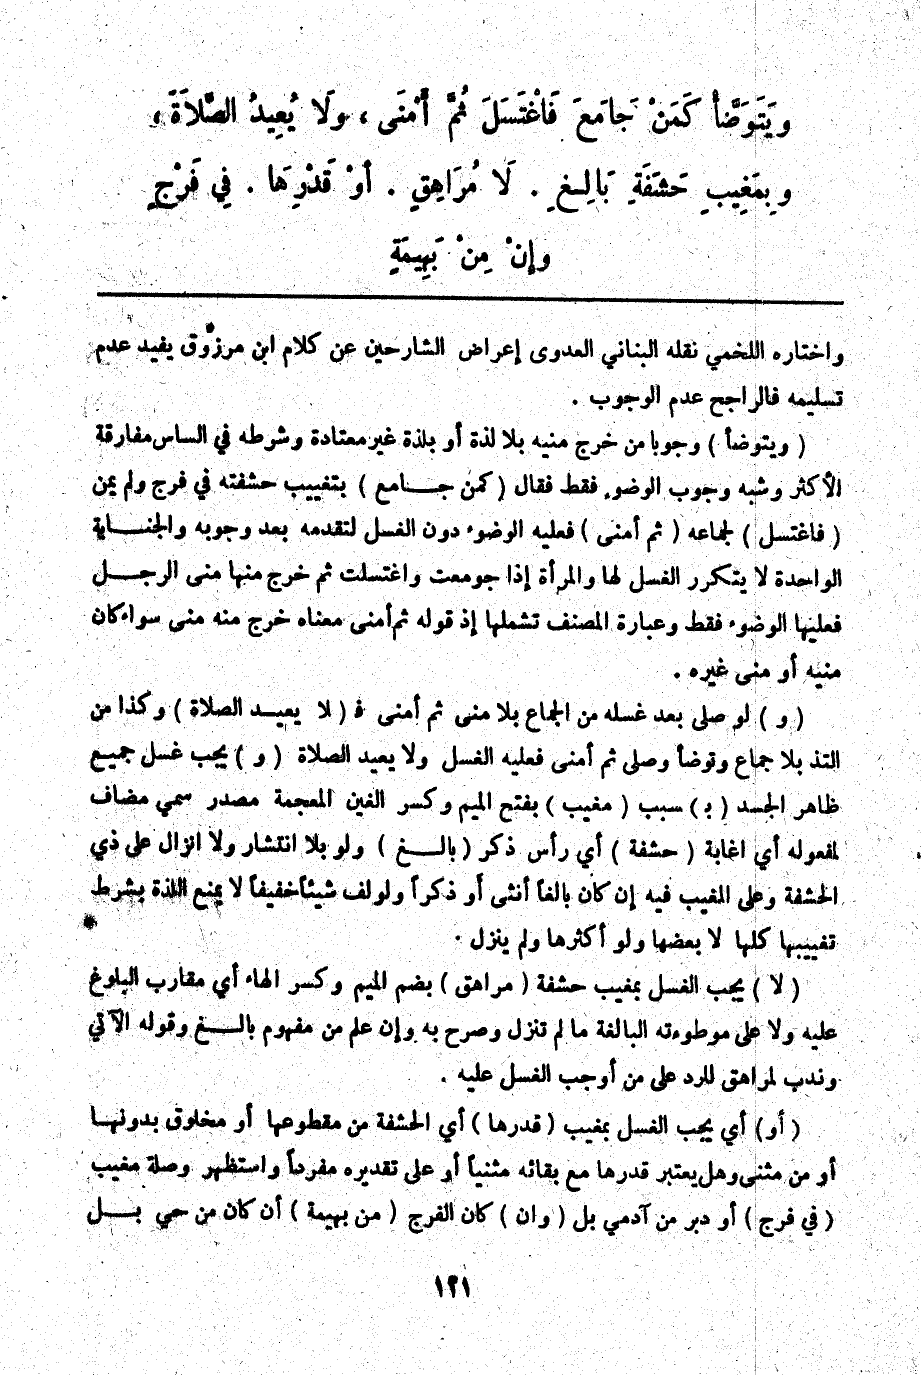 ويَتَوَضَّأُ كَمَنْ جَامَعَ فَاغْتَسَلَ ثُمَّ أَمْنَى ، ولَا يُعِيدُ الصَّلَاةَ ،
وبِمَغِيبِ حَشَفَةِ بَالِـغٍ . لَا مُرَاهِقٍ . أوْ قَدْرِهَا . فِي فَرْجٍ
وإنْ مِنْ بَهِيمَةٍ
واختاره اللخمي نقله البناني العدوى إعراض الشارحين عن كلام ابن مرزوق يفيد عدم
تسليمه فالراجح عدم الوجوب .
( ويتوضأ ) وجوبا من خرج منيه بلا لذة أو بلذة غير معتادة وشرطه في الساس مفارقة
الأكثر وشبه وجوب الوضوء فقط فقال ( كمن جــامع ) بتغييب حشفته في فرج ولم يمن
( فاغتسل ) لجماعه ( ثم أمنى ) فعليه الوضوء دون الغسل لتقدمه بعد وجوبه والجنــابة
الواحدة لا يتكرر الغسل لها والمرأة إذا جومعت واغتسلت ثم خرج منها منى الرجــل
فعليها الوضوء فقط وعبارة المصنف تشملها إذ قوله ثم أمنى معناه خرج منه منى سواء كان
منيه أو منى غيره .
( و ) لو صلى بعد غسله من الجماع بلا منى ثم أمنى فـ ( لا يعيــد الصلاة ) وكذا من
التذ بلا جماع وتوضأ وصلى ثم أمنى فعليه الغسل ولا يعيد الصلاة ( و ) يجب غسل جميع
ظاهر الجسد ( بـ ) سبب ( مغيب ) بفتح الميم وكسر الغين المعجمة مصدر سمي مضاف
لمفعوله أي اغابة ( حشفة ) أي رأس ذكر ( بالــغ ) ولو بلا انتشار ولا انزال على ذي
الحشفة وعلى المغيب فيه إن كان بالغاً أنثى أو ذكراً ولو لف شيئاً خفيفاً لا يمنع اللذة بشرط
تغييبها كلها لا بعضها ولو أكثرها ولم ينزل .
( لا ) يجب الغسل بمغيب حشفة ( مراهق ) بضم الميم وكسر الهاء أي مقارب البلوغ
عليه ولا على موطوءته البالغة ما لم تنزل وصرح به وإن علم من مفهوم بالــغ وقوله الآتي
وندب لمراهق للرد على من أوجب الغسل عليه .
( أو ) أي يجب الغسل بمغيب ( قدرها ) أي الحشفة من مقطوعها أو مخلوق بدونهــا
أو من مثنى وهل يعتبر قدرها مع بقائه مثنياً أو على تقديره مفرداً واستظهر وصلة مغيب
( في فرج ) أو دبر من آدمي بل ( وان ) كان الفرج ( من بهيمة ) أن كان من حي بــل
١٢١